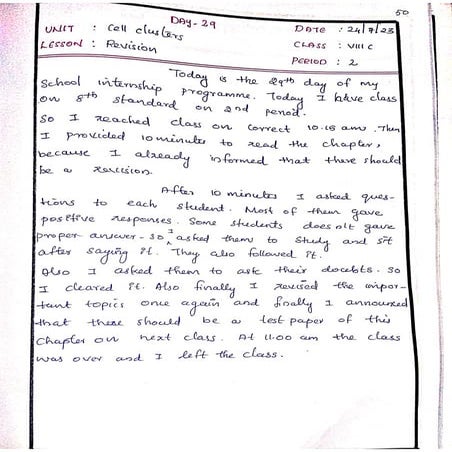 50
DAY- 29
UNIT : Cell clusters DATE : 24/7/23
LESSON : Revision CLASS : VIII.C
PERIOD : 2
Today is the 29th day of my
School internship programme. Today I have class
on 8th standard on 2nd period.
So I reached class on correct 10.15 am. Then
I provided 10 minutes to read the chapter,
because I already informed that there should
be a revision.
After 10 minutes I asked ques-
tions to each student. Most of them gave
positive responses. Some students does n't gave
proper answer. So I asked them to study and sit
after saying it. They also followed it.
Also I asked them to ask their doubts. So
I cleared it. Also finally I revised the impor-
tant topics once again and finally I announced
that there should be a test paper of this
Chapter on next class. At 11.00 am the class
was over and I left the class.